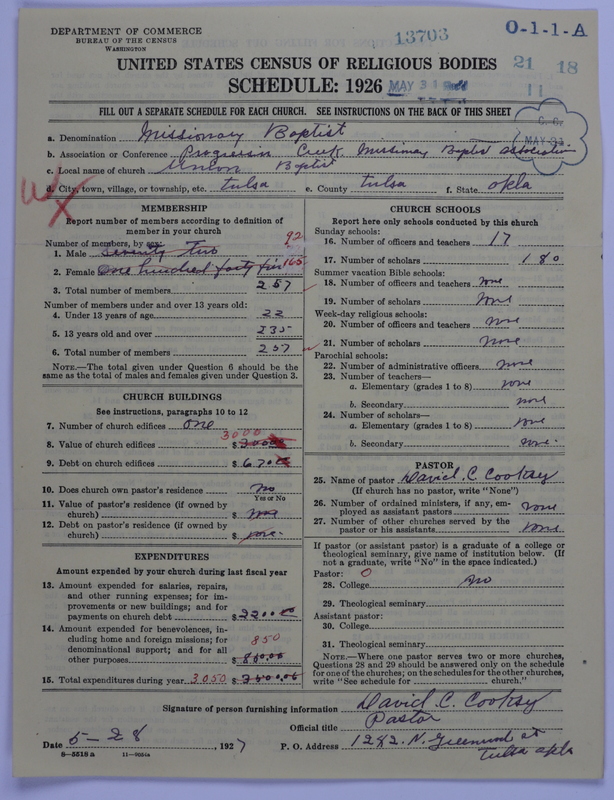 DEPARTMENT OF COMMERCE
BUREAU OF THE CENSUS
WASHINGTON
13703
O-1-1-A
UNITED STATES CENSUS OF RELIGIOUS BODIES
21 18
SCHEDULE: 1926
MAY 31
11
FILL OUT A SEPARATE SCHEDULE FOR EACH CHURCH. SEE INSTRUCTIONS ON THE BACK OF THIS SHEET
C. C.
MAY 31
a. Denomination Missionary Baptist
b. Association or Conference Progressive Creek Missionary Baptist association
c. Local name of church Union Baptist
d. City, town, village, or township, etc. Tulsa e. County Tulsa f. State Okla
MEMBERSHIP
Report number of members according to definition of
member in your church
Number of members, by sex
92
1. Male seventy two
2. Female One hundred forty five 165
3. Total number of members 257
Number of members under and over 13 years old:
4. Under 13 years of age 22
5. 13 years old and over 235
6. Total number of members 257
NOTE.—The total given under Question 6 should be
same as the total of males and females given under Question 3.
CHURCH BUILDINGS
See instructions, paragraphs 10 to 12
7. Number of church edifices one
3000
8. Value of church edifices $
9. Debt on church edifices $
10. Does church own pastor's residence no
Yes or No
11. Value of pastor's residence (if owned by
church) $ none
12. Debt on pastor's residence (if owned by
church) $ none
EXPENDITURES
Amount expended by your church during last fiscal year
13. Amount expended for salaries, repairs,
and other running expenses; for im-
provements or new buildings; and for
payments on church debt $ 2200.00
14. Amount expended for benevolences, in-
cluding home and foreign missions; for
denominational support; and for all
850
other purposes $
15. Total expenditures during year 3050 $
CHURCH SCHOOLS
Report here only schools conducted by this church
Sunday schools:
16. Number of officers and teachers 17
17. Number of scholars 180
Summer vacation Bible schools:
18. Number of officers and teachers none
19. Number of scholars none
Week-day religious schools:
20. Number of officers and teachers none
21. Number of scholars none
Parochial schools:
22. Number of administrative officers none
23. Number of teachers—
a. Elementary (grades 1 to 8) none
b. Secondary none
24. Number of scholars—
a. Elementary (grades 1 to 8) none
b. Secondary none
PASTOR
25. Name of pastor David C Cooksy
(If church has no pastor, write "None")
26. Number of ordained ministers, if any, em-
ployed as assistant pastors none
27. Number of other churches served by the
pastor or his assistants none
If pastor (or assistant pastor) is a graduate of a college or
theological seminary, give name of institution below. (If
not a graduate, write "No" in the space indicated.)
Pastor: 0
28. College no
29. Theological seminary
Assistant pastor:
30. College
31. Theological seminary
NOTE.—Where one pastor serves two or more churches,
Questions 28 and 29 should be answered only on the schedule
for one of the churches; on the schedules for the other churches,
write "See schedule for church."
Signature of person furnishing information David C. Cooksy
Official title Pastor
Date 5-28, 1927 P. O. Address 1282. N. Greenwood st
Tulsa okla
8—5518 a 11—9054a